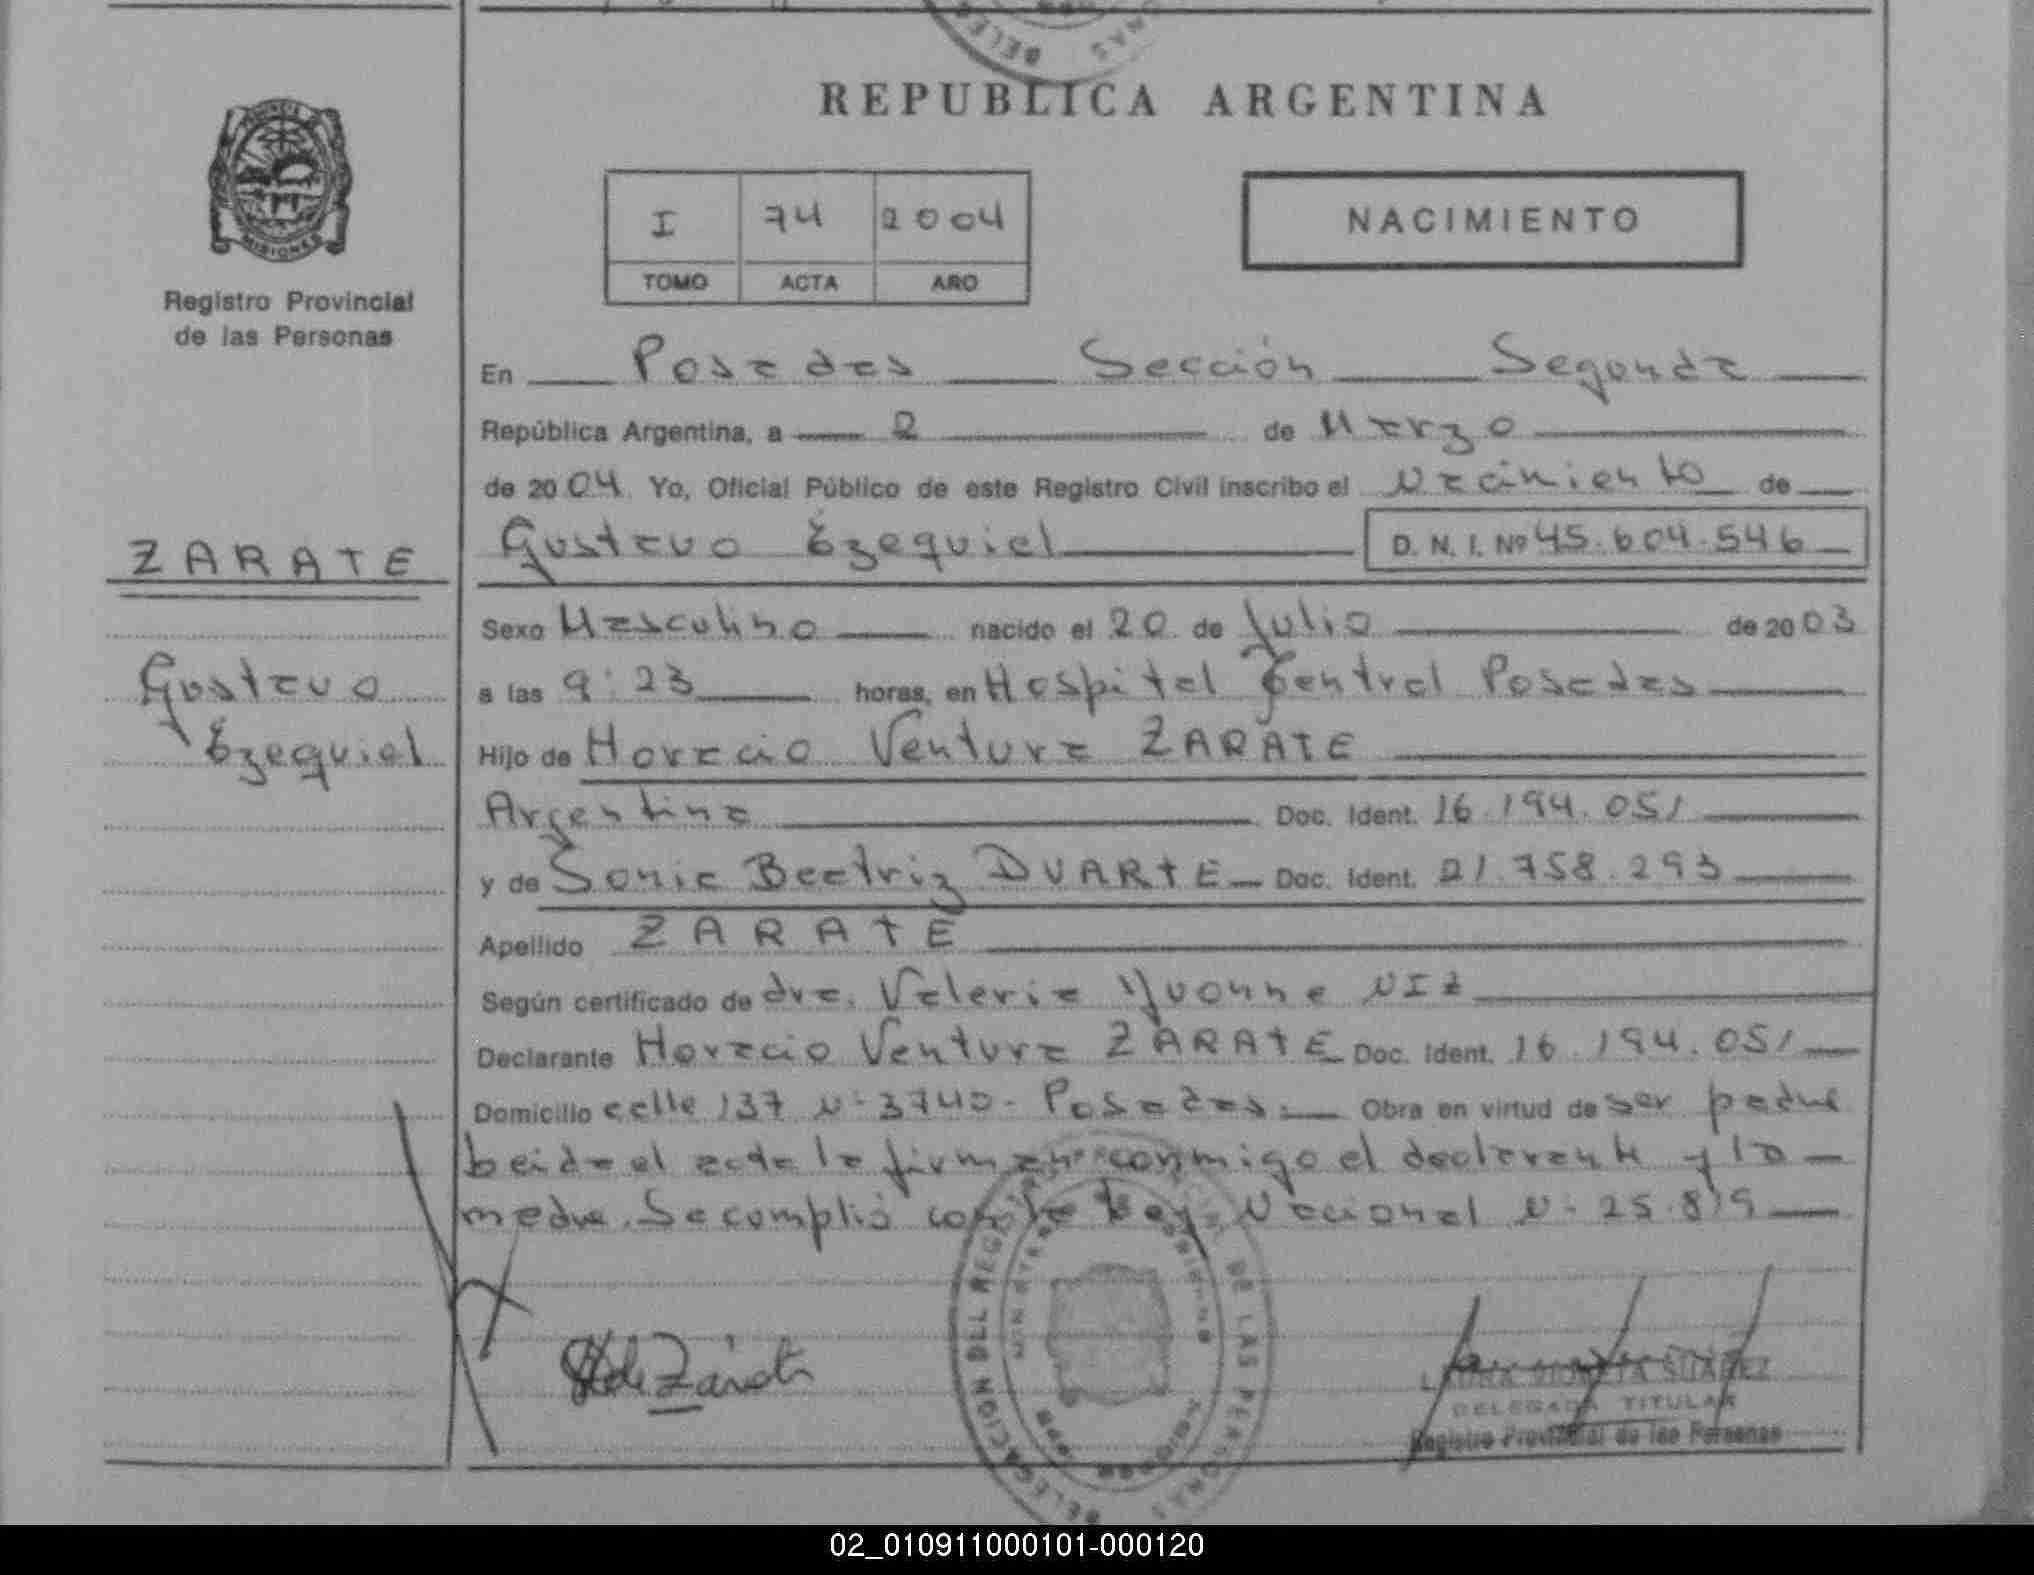 REPUBLICA ARGENTINA
PROVINCIA
MISIONES
Registro Provincial
de las Personas
I 74 2004
TOMO ACTA AÑO
NACIMIENTO
En Posadas Sección Segunda
República Argentina, a 2 de Marzo
de 2004. Yo, Oficial Público de este Registro Civil inscribo el Nacimiento de
ZARATE
Gustavo Ezequiel D. N. I. Nº 45.604.546
Sexo Masculino nacido el 20 de Julio de 2003
Gustavo
a las 9:23 horas, en Hospital Central Posadas
Ezequiel
Hijo de Horacio Ventura ZARATE
Argentina Doc. Ident. 16.194.051
y de Sonia Beatriz DUARTE Doc. Ident. 21.758.293
Apellido ZARATE
Según certificado de dra. Valeria Yvonne NIZ
Declarante Horacio Ventura ZARATE Doc. Ident. 16.194.051
Domicilio calle 137 Nº 3740- Posadas. Obra en virtud de ser padre
Leida el acta la firman conmigo el declarante y la
madre. Se complió con la Ley Nacional Nº 25.819
DELEGACION DEL REGISTRO DE LAS PERSONAS
de Zárate
SUAREZ
DELEGADA TITULAR
Registro Provincial de las Personas
02_010911000101-000120